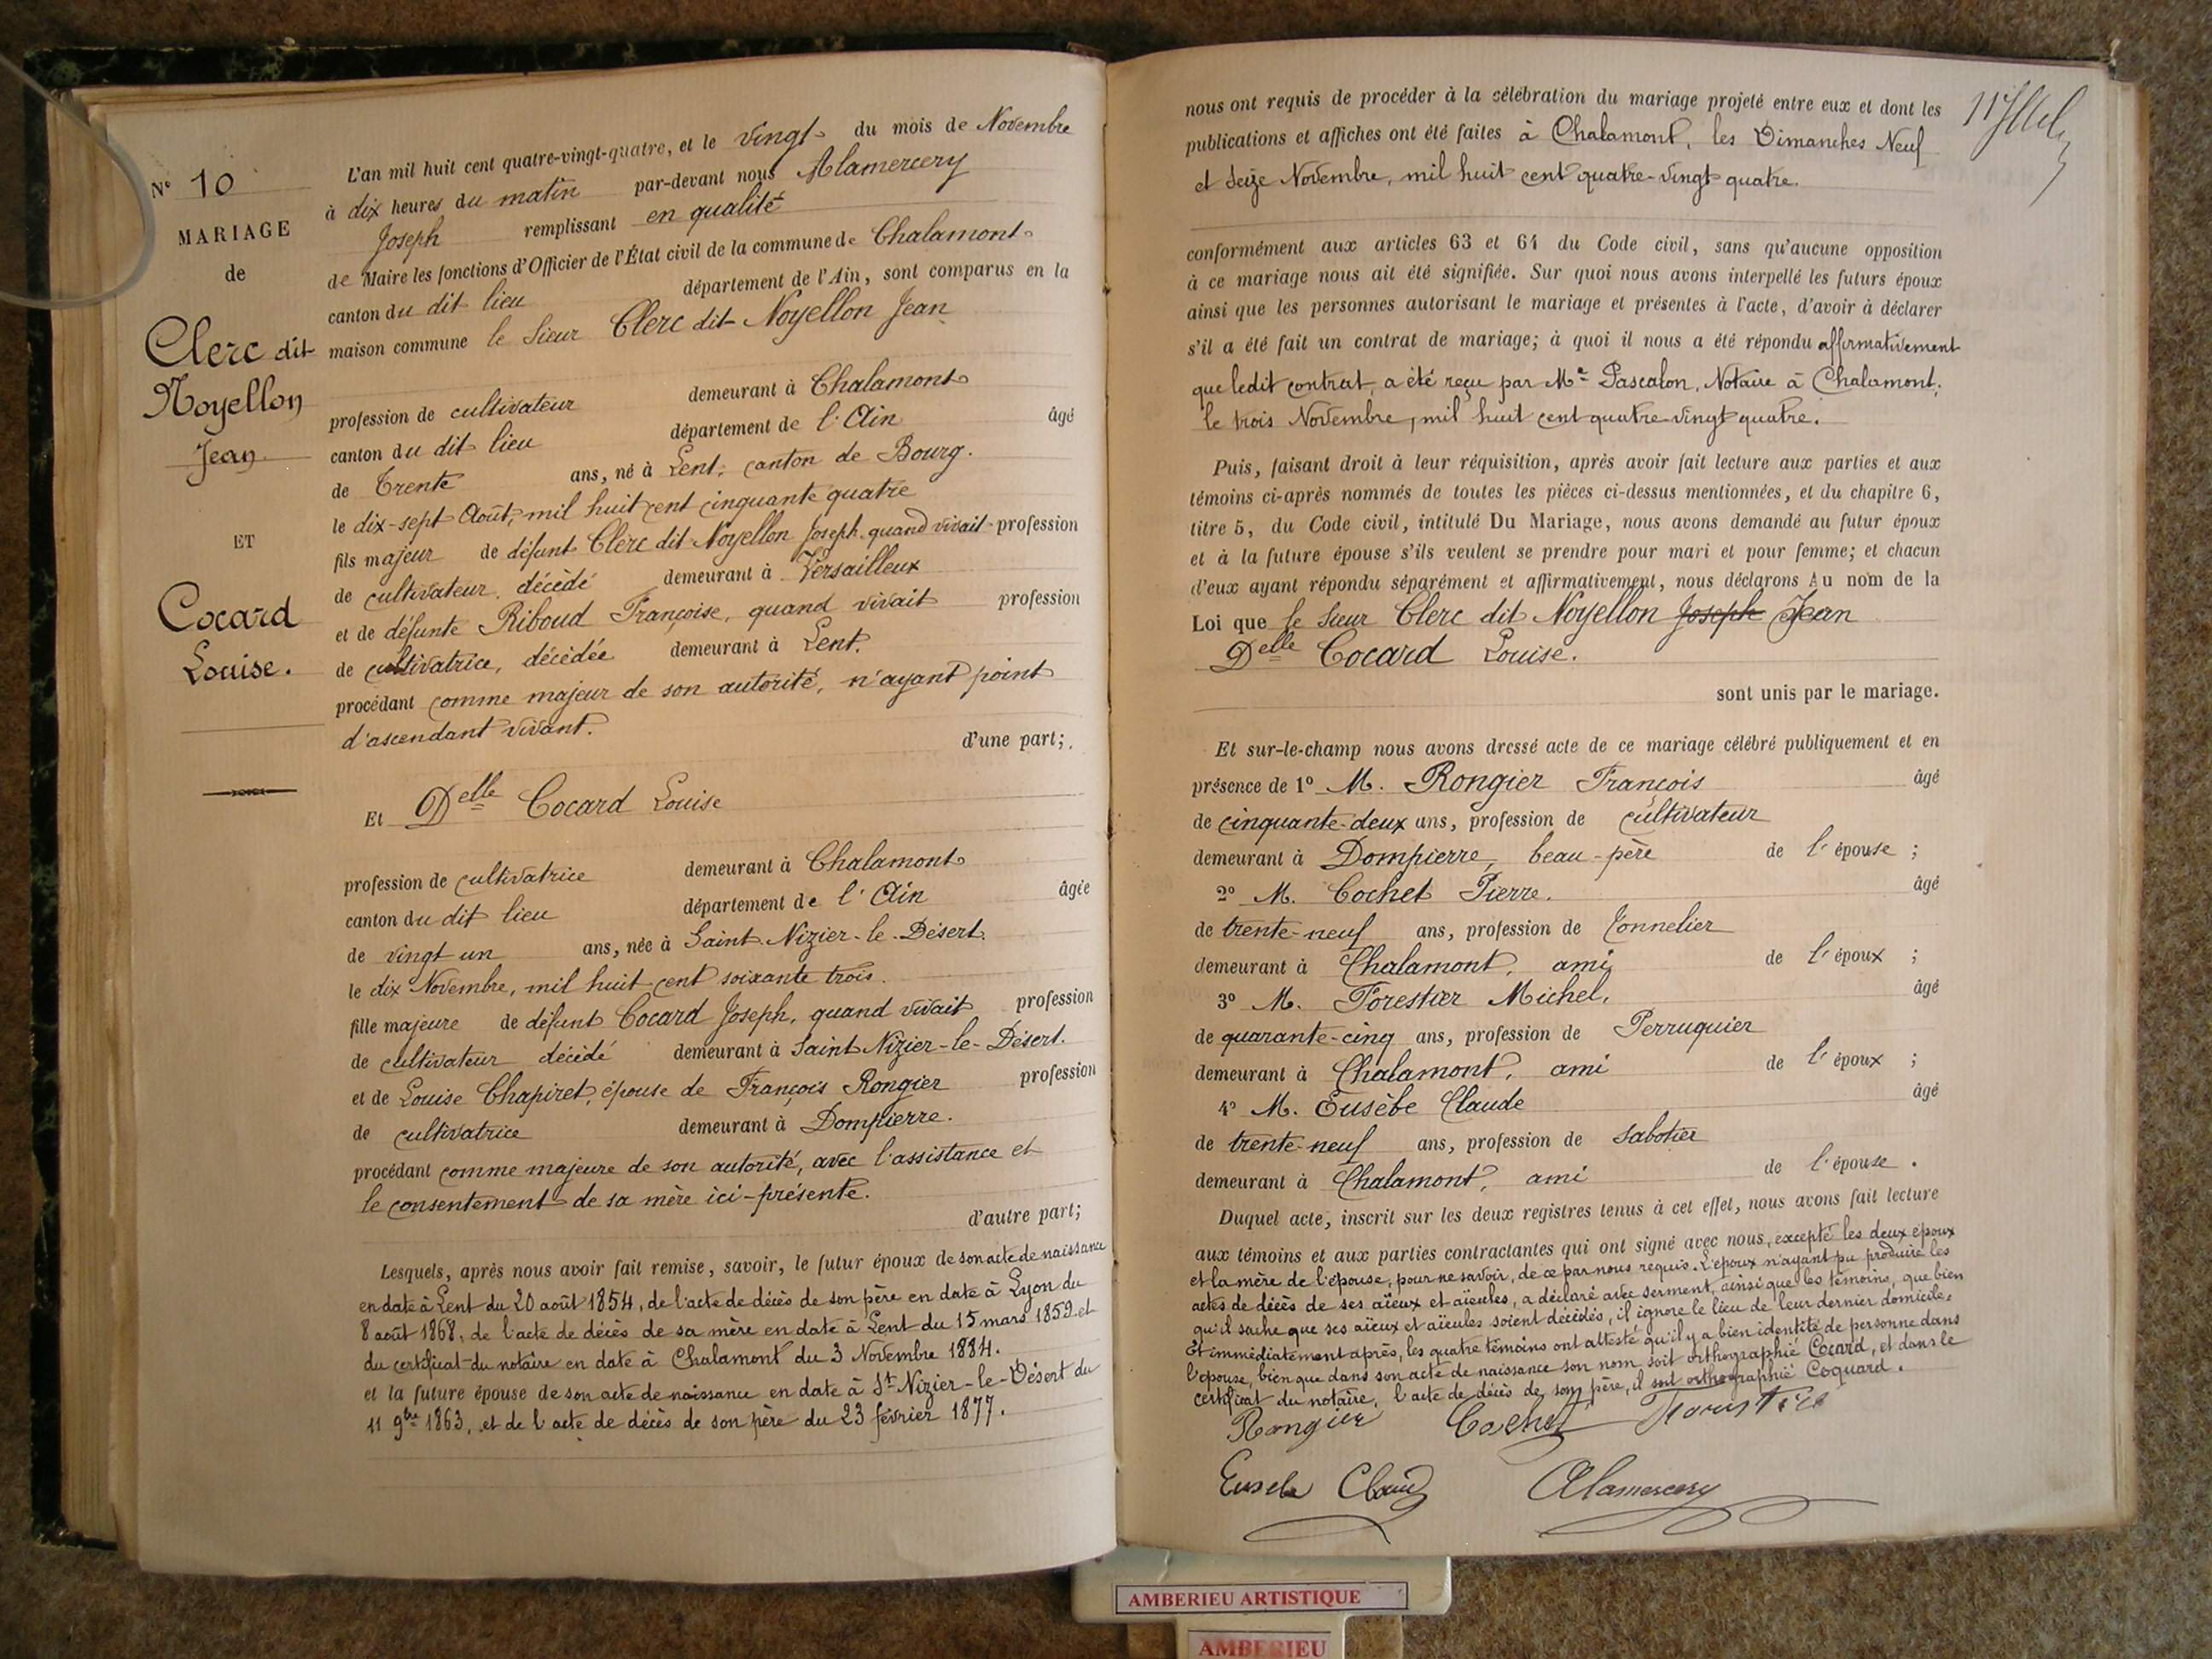 N° 10
MARIAGE
de
Clerc dit
Noyellon
Jean
ET
Cocard
Louise.
L'an mil huit cent quatre-vingt-quatre, et le vingt du mois de Novembre
à dix heures du matin par-devant nous Alamercery
Joseph remplissant en qualité
de Maire les fonctions d'Officier de l'État civil de la commune de Chalamont
canton du dit lieu département de l'Ain, sont comparus en la
maison commune le Sieur Clerc dit Noyellon Jean
profession de cultivateur demeurant à Chalamont
canton du dit lieu département de l'Ain âgé
de Trente ans, né à Lent, canton de Bourg.
le dix-sept Août, mil huit cent cinquante quatre
fils majeur de défunt Clerc dit Noyellon Joseph quand vivait profession
de cultivateur, décédé demeurant à Versailleux
et de défunte Riboud Françoise, quand vivait profession
de cultivatrice, décédée demeurant à Lent.
procédant comme majeur de son autorité, n'ayant point
d'ascendant vivant.
d'une part;
Et Delle Cocard Louise
profession de cultivatrice demeurant à Chalamont
canton du dit lieu département de l'Ain âgée
de vingt un ans, née à Saint-Nizier-le-Désert.
le dix Novembre, mil huit cent soixante trois.
fille majeure de défunt Cocard Joseph, quand vivait profession
de cultivateur décédé demeurant à Saint Nizier-le-Désert.
et de Louise Chapiret, épouse de François Rongier profession
de cultivatrice demeurant à Dompierre.
procédant comme majeure de son autorité, avec l'assistance et
le consentement de sa mère ici-présente.
d'autre part;
Lesquels, après nous avoir fait remise, savoir, le futur époux de son acte de naissance
en date à Lent du 20 août 1854, de l'acte de décès de son père en date à Lyon du
8 août 1868, de l'acte de décès de sa mère en date à Lent du 15 mars 1859 et
du certificat du notaire en date à Chalamont du 3 Novembre 1884.
et la future épouse de son acte de naissance en date à St Nizier-le-Désert du
11 9bre 1863, et de l'acte de décès de son père du 23 février 1877.
nous ont requis de procéder à la célébration du mariage projeté entre eux et dont les
publications et affiches ont été faites à Chalamont, les Dimanches Neuf
et Seize Novembre, mil huit cent quatre-vingt quatre.
conformément aux articles 63 et 64 du Code civil, sans qu'aucune opposition
à ce mariage nous ait été signifiée. Sur quoi nous avons interpellé les futurs époux
ainsi que les personnes autorisant le mariage et présentes à l'acte, d'avoir à déclarer
s'il a été fait un contrat de mariage; à quoi il nous a été répondu affirmativement
que ledit contrat, a été reçu par Me Pascalon, Notaire à Chalamont,
le trois Novembre, mil huit cent quatre-vingt quatre.
Puis, faisant droit à leur réquisition, après avoir fait lecture aux parties et aux
témoins ci-après nommés de toutes les pièces ci-dessus mentionnées, et du chapitre 6,
titre 5, du Code civil, intitulé Du Mariage, nous avons demandé au futur époux
et à la future épouse s'ils veulent se prendre pour mari et pour femme; et chacun
d'eux ayant répondu séparément et affirmativement, nous déclarons Au nom de la
Loi que le Sieur Clerc dit Noyellon Joseph Jean
Delle Cocard Louise.
sont unis par le mariage.
Et sur-le-champ nous avons dressé acte de ce mariage célébré publiquement et en
présence de 1° M. Rongier François âgé
de cinquante-deux ans, profession de cultivateur
demeurant à Dompierre, beau-père de l'épouse ;
2° M. Cochet Pierre. âgé
de trente-neuf ans, profession de Tonnelier
demeurant à Chalamont, ami de l'époux ;
3° M. Forestier Michel, âgé
de quarante-cinq ans, profession de Perruquier
demeurant à Chalamont, ami de l'époux ;
4° M. Eusèbe Claude âgé
de trente-neuf ans, profession de sabotier
demeurant à Chalamont, ami de l'épouse.
Duquel acte, inscrit sur les deux registres tenus à cet effet, nous avons fait lecture
aux témoins et aux parties contractantes qui ont signé avec nous, excepté les deux époux
et la mère de l'épouse, pour ne savoir, de ce par nous requis. L'époux n'ayant pu produire les
actes de décès de ses aïeux et aïeules, a déclaré avec serment, ainsi que les témoins, que bien
qu'il sache que ses aïeux et aïeules soient décédés, il ignore le lieu de leur dernier domicile.
Et immédiatement après, les quatre témoins ont attesté qu'il y a bien identité de personne dans
l'épouse, bien que dans son acte de naissance son nom soit orthographié Cocard, et dans le
certificat du notaire, l'acte de décès de son père, il soit orthographié Coquard.
Rongier Cochet Forestier
Eusebe Claude Alamercery
AMBERIEU ARTISTIQUE
AMBERIEU